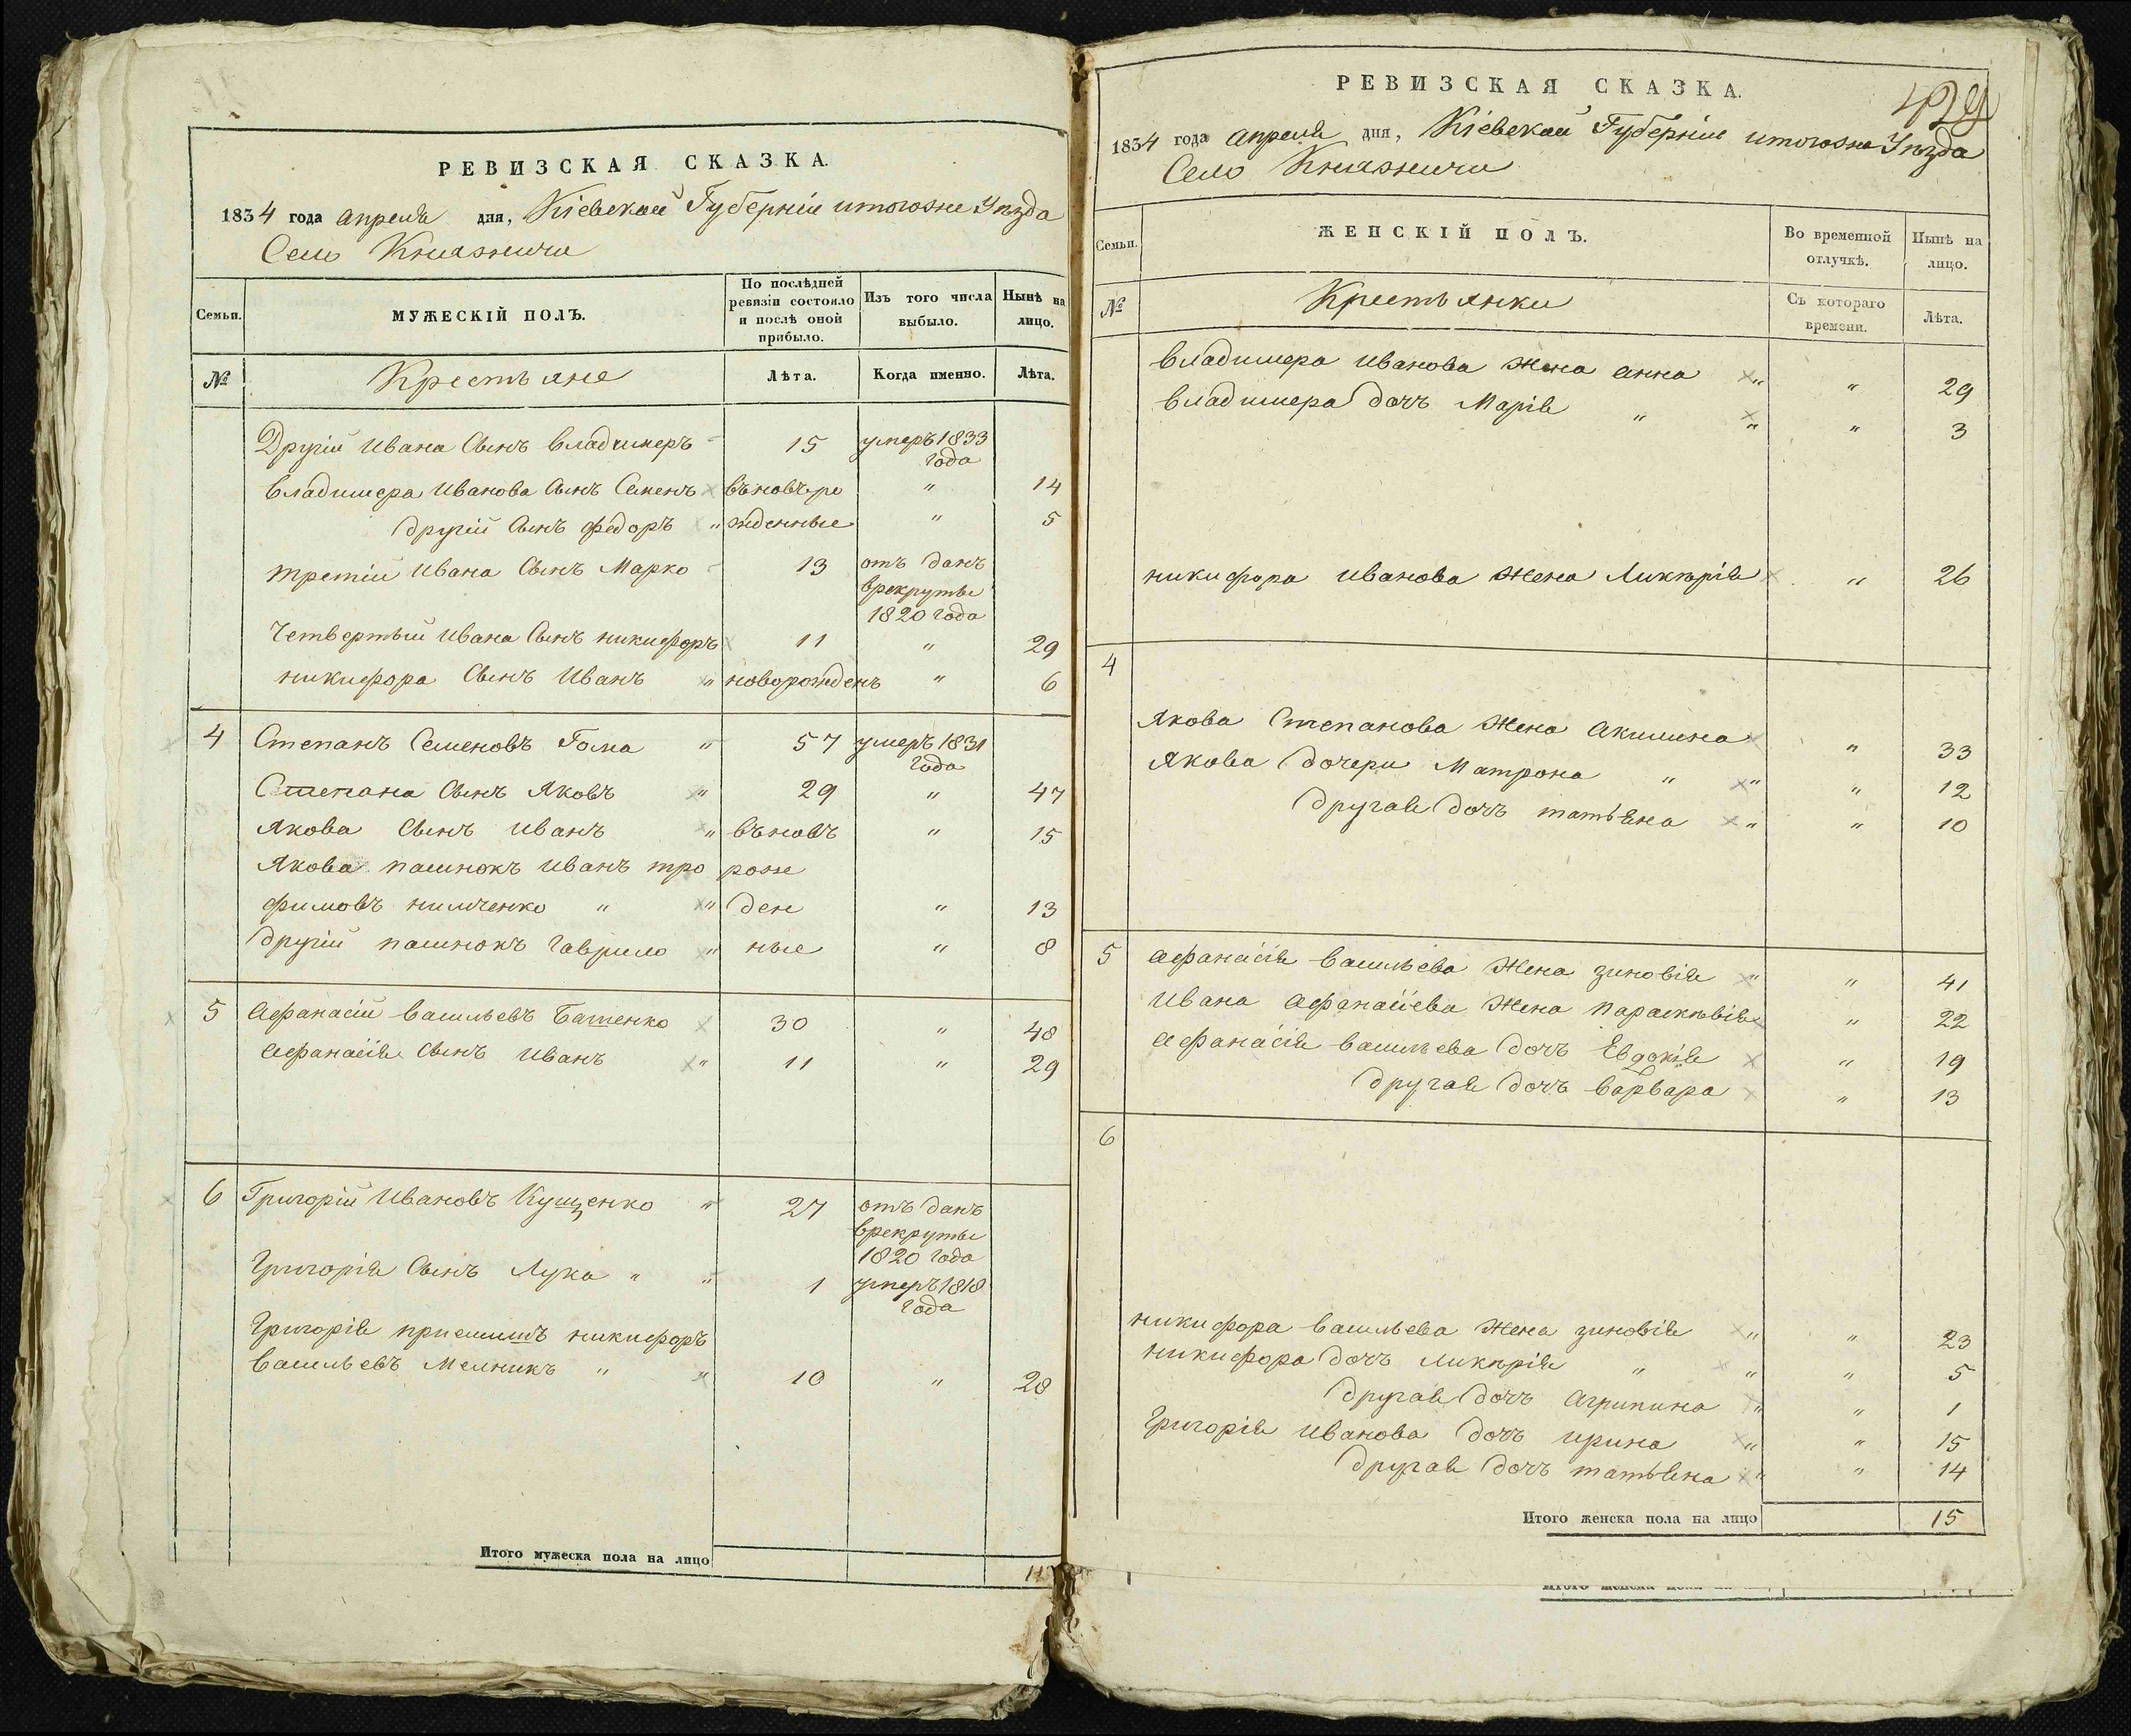 РЕВИЗСКАЯ СКАЗКА.
1834 года апреля дня, Кіевской Губерніи итогоже Уѣзда
Село Княжичи
Семьи.
МУЖЕСКІЙ ПОЛЪ.
По послѣдней ревизіи состояло и послѣ оной прибыло.
Изъ того числа выбыло.
Нынѣ на лицо.
№
Крестьяне
Лѣта.
Когда именно.
Лѣта.
Другій Ивана Сынъ Владимеръ 15 умеръ 1833
года
Владимера Иванова Сынъ Семенъ въновьро " 14
другій Сынъ Федоръ " жденные " 5
третій Ивана Сынъ Марко 13 отъ данъ
врекруты
1820 года
Четвертый Ивана Сынъ никифоръ 11 " 29
никифора Сынъ Иванъ " новорожденъ " 6
4 Степанъ Семеновъ Гома " 57 умеръ 1831
года
Степана Сынъ Яковъ " 29 " 47
Якова Сынъ Иванъ " въновь " 15
Якова пасинокъ Иванъ тро роже
фимовъ нимченко " " ден " 13
другій пасинокъ Гаврило " ные " 8
5 Афанасій Васильевъ Батенко 30 " 48
Афанасія Сынъ Иванъ " 11 " 29
6 Григорій Ивановъ Кущенко " 27 отъ данъ
врекруты
1820 года
Григорія Сынъ Лука " " 1 умеръ 1818
года
Григорія приемышъ никифоръ
Васильевъ Мелникъ " " 10 " 28
Итого мужеска пола на лицо 11
РЕВИЗСКАЯ СКАЗКА.
1834 года апреля дня, Кіевской Губерніи итогоже Уѣзда
Село Княжичи
Семьи.
ЖЕНСКІЙ ПОЛЪ.
Во временной отлучкѣ.
Нынѣ на лицо.
№
Крестьянки
Съ котораго времени.
Лѣта.
Владимера Иванова Жена Анна " " 29
Владимера дочь Марія " " " 3
никифора Иванова Жена Ликѣрія " 26
4
Якова Степанова Жена Акилина " 33
Якова дочери Матрона " " " 12
Другая дочь татьяна " " 10
5 Афанасія Васильева Жена зиновія " " 41
Ивана Афанасіева Жена Параскѣвія " 22
Афанасія Васильева дочь Евдокія " 19
Другая дочь Варвара " 13
6
никифора Васильева Жена зиновія " " 23
никифора дочь Ликѣрія " " " 5
Другая дочь Агрипина " " 1
Григорія Иванова дочь ирина " " 15
Другая дочь татьяна " " 14
Итого женска пола на лицо 15